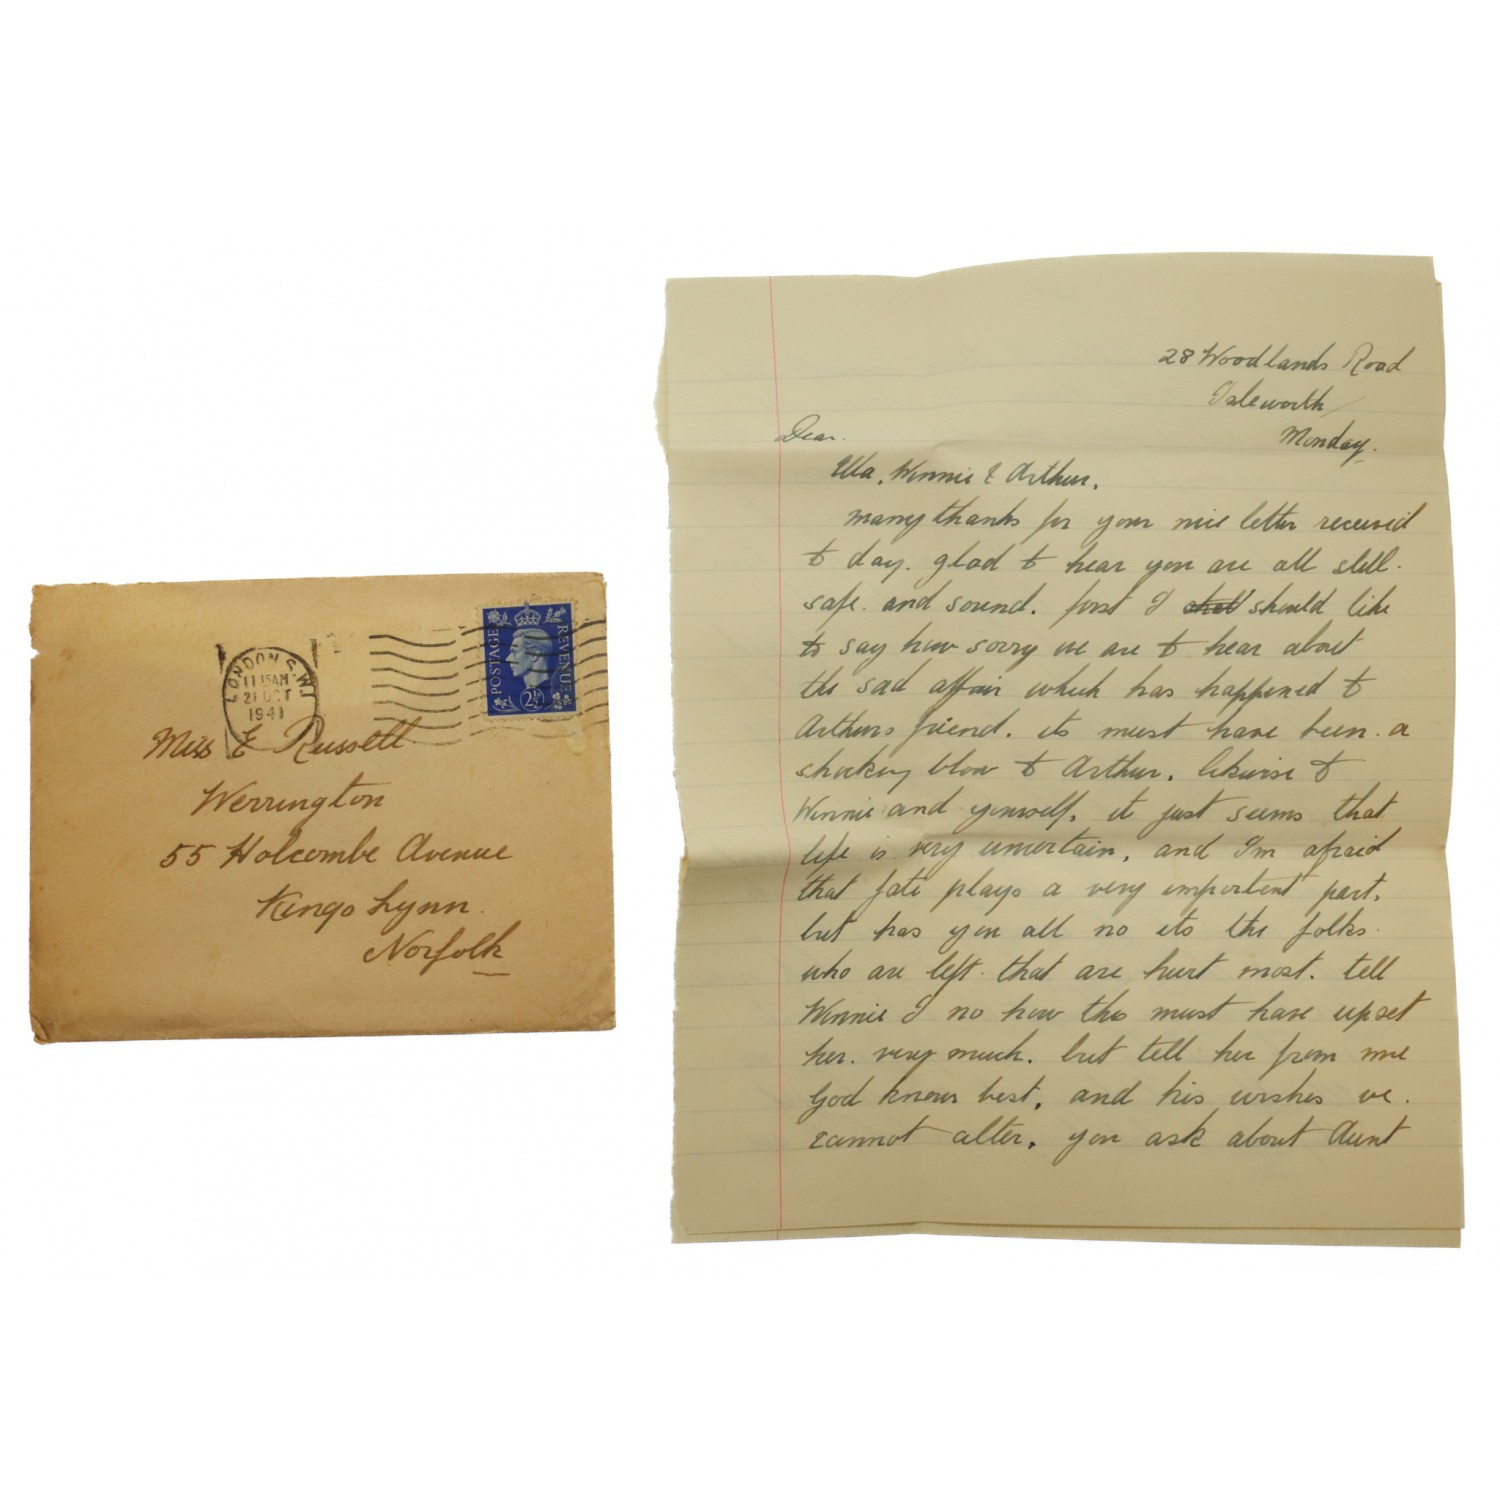 LONDON S.W.1
11 15 AM
21 OCT
1941
POSTAGE
REVENUE
2½D
Miss E Russell
Werrington
55 Holcombe Avenue
Kings Lynn.
Norfolk
28 Woodlands Road
Isleworth
Monday.
Dear.
Ella, Winnie & Arthur,
many thanks for your nice letter received
to day. glad to hear you are all still.
safe. and sound. first I should like
to say how sorry we are to hear about
the sad affair which has happened to
Arthurs friend. its must have been. a
shocking blow to Arthur. likewise to
Winnie and yourself. it just seems that
life is very uncertain, and I'm afraid
that fate plays a very important part.
but has you all no its the folks.
who are left. that are hurt most. tell
Winnie I no how this must have upset
her. very much. but tell her from me
God knows best, and his wishes we.
cannot alter. you ask about Aunt